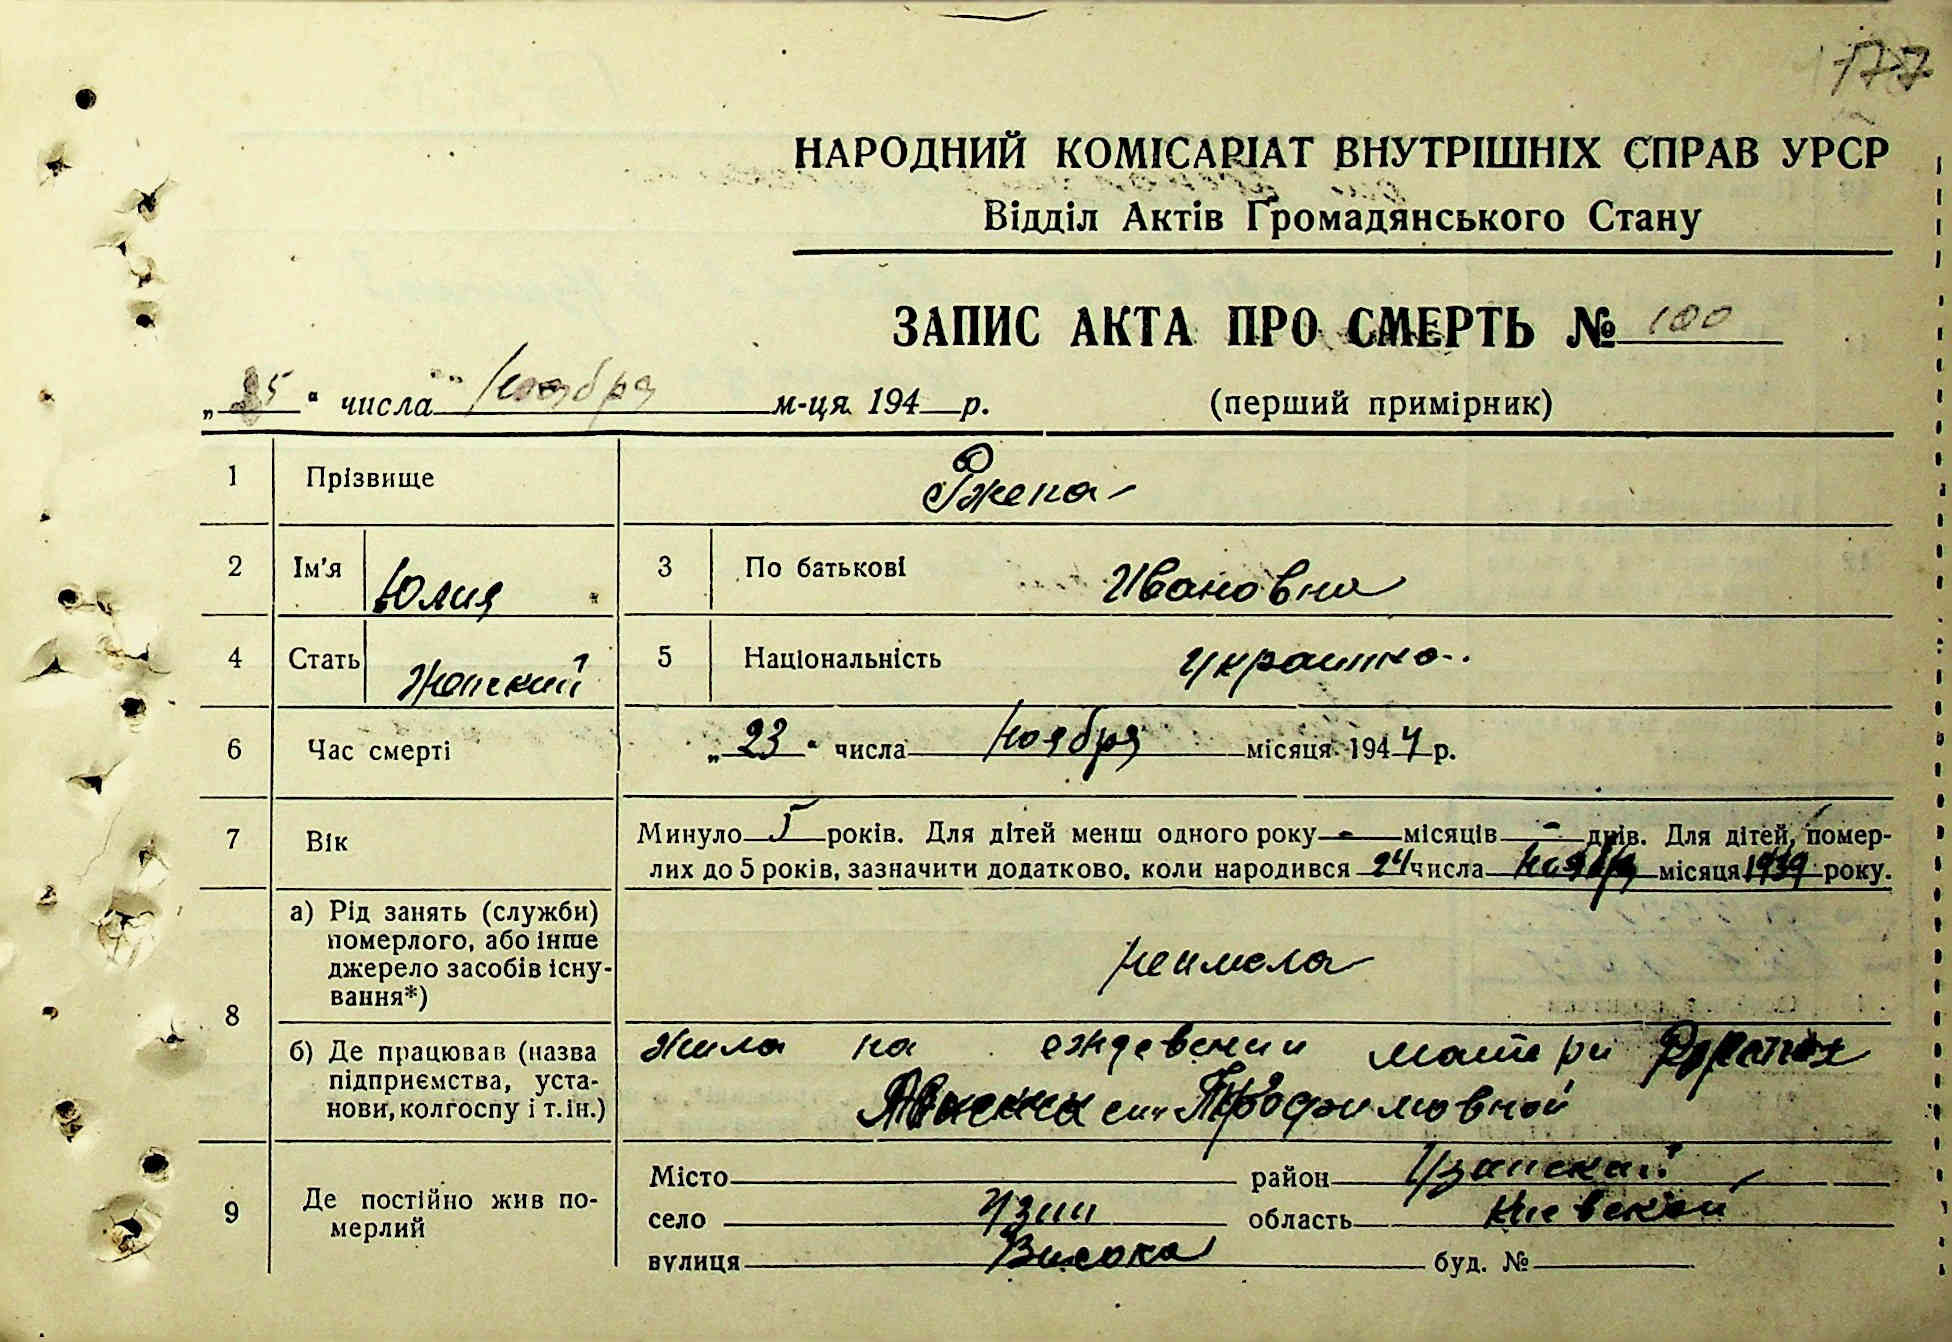 177
НАРОДНИЙ КОМІСАРІАТ ВНУТРІШНІХ СПРАВ УРСР
Відділ Актів Громадянського Стану
ЗАПИС АКТА ПРО СМЕРТЬ № 100
„25" числа Ноября м-ця 194 р. (перший примірник)
1 Прізвище Ржепа
2 Ім'я Юлия 3 По батькові Ивановна
4 Стать Женский 5 Національність Украинка
6 Час смерті „23" числа Ноября місяця 1944 р.
7 Вік Минуло 5 років. Для дітей менш одного року - місяців - днів. Для дітей, помер-
лих до 5 років, зазначити додатково, коли народився 24 числа Ноября місяця 1939 року.
8 а) Рід занять (служби)
померлого, або інше
джерело засобів існу-
вання*) неимела
б) Де працював (назва
підприємства, уста-
нови, колгоспу і т. ін.) жила на иждевении матери
Трофимовной
9 Де постійно жив по-
мерлий
Місто район Узинский
село Узин область Киевской
вулиця Висока буд. №